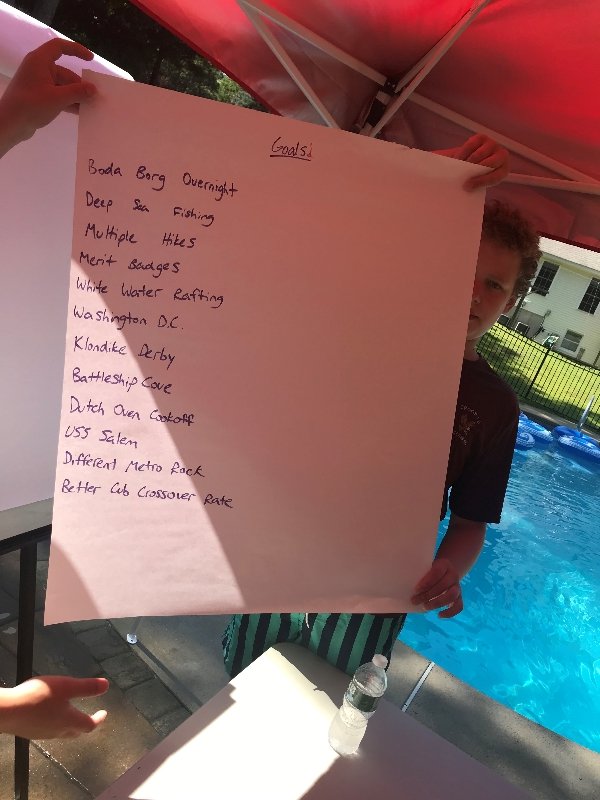 Goals!
Boda Borg Overnight
Deep Sea Fishing
Multiple Hikes
Merit Badges
White Water Rafting
Washington D.C.
Klondike Derby
Battleship Cove
Dutch Oven Cookoff
USS Salem
Different Metro Rock
Better Cub Crossover Rate